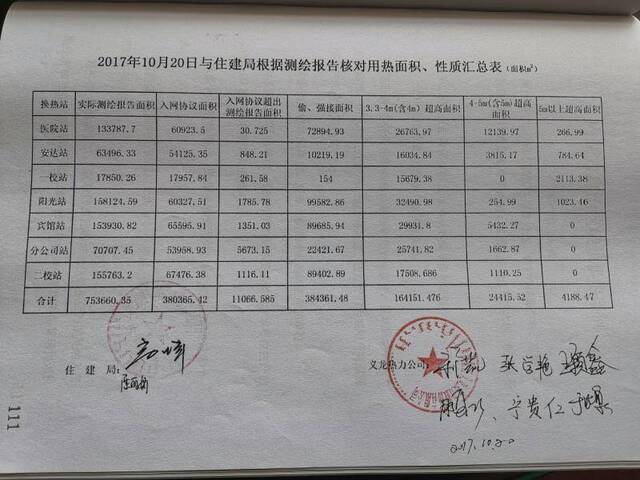 2017年10月20日与住建局根据测绘报告核对用热面积、性质汇总表（面积m²）
换热站 实际测绘报告面积 入网协议面积 入网协议超出测绘报告面积 偷、强接面积 3.3-4m(含4m)超高面积 4-5m(含5m)超高面积 5m以上超高面积
医院站 133787.7 60923.5 30.725 72894.93 26763.97 12139.97 266.99
安达站 63496.33 54125.35 848.21 10219.19 16034.84 3815.17 784.64
一校站 17850.26 17957.84 261.58 154 15679.38 0 2113.38
阳光站 158124.59 60327.51 1785.78 99582.86 32490.98 254.99 1023.46
宾馆站 153930.82 65595.91 1351.03 89685.94 29931.8 5432.27 0
分公司站 70707.45 53958.93 5673.15 22421.67 25741.82 1662.87 0
二校站 155763.2 67476.38 1116.11 89402.89 17508.686 1110.25 0
合计 753660.35 380365.42 11066.585 384361.48 164151.476 24415.52 4188.47
住建局：
义龙热力公司：
宁贵仁
2017.10.20
111